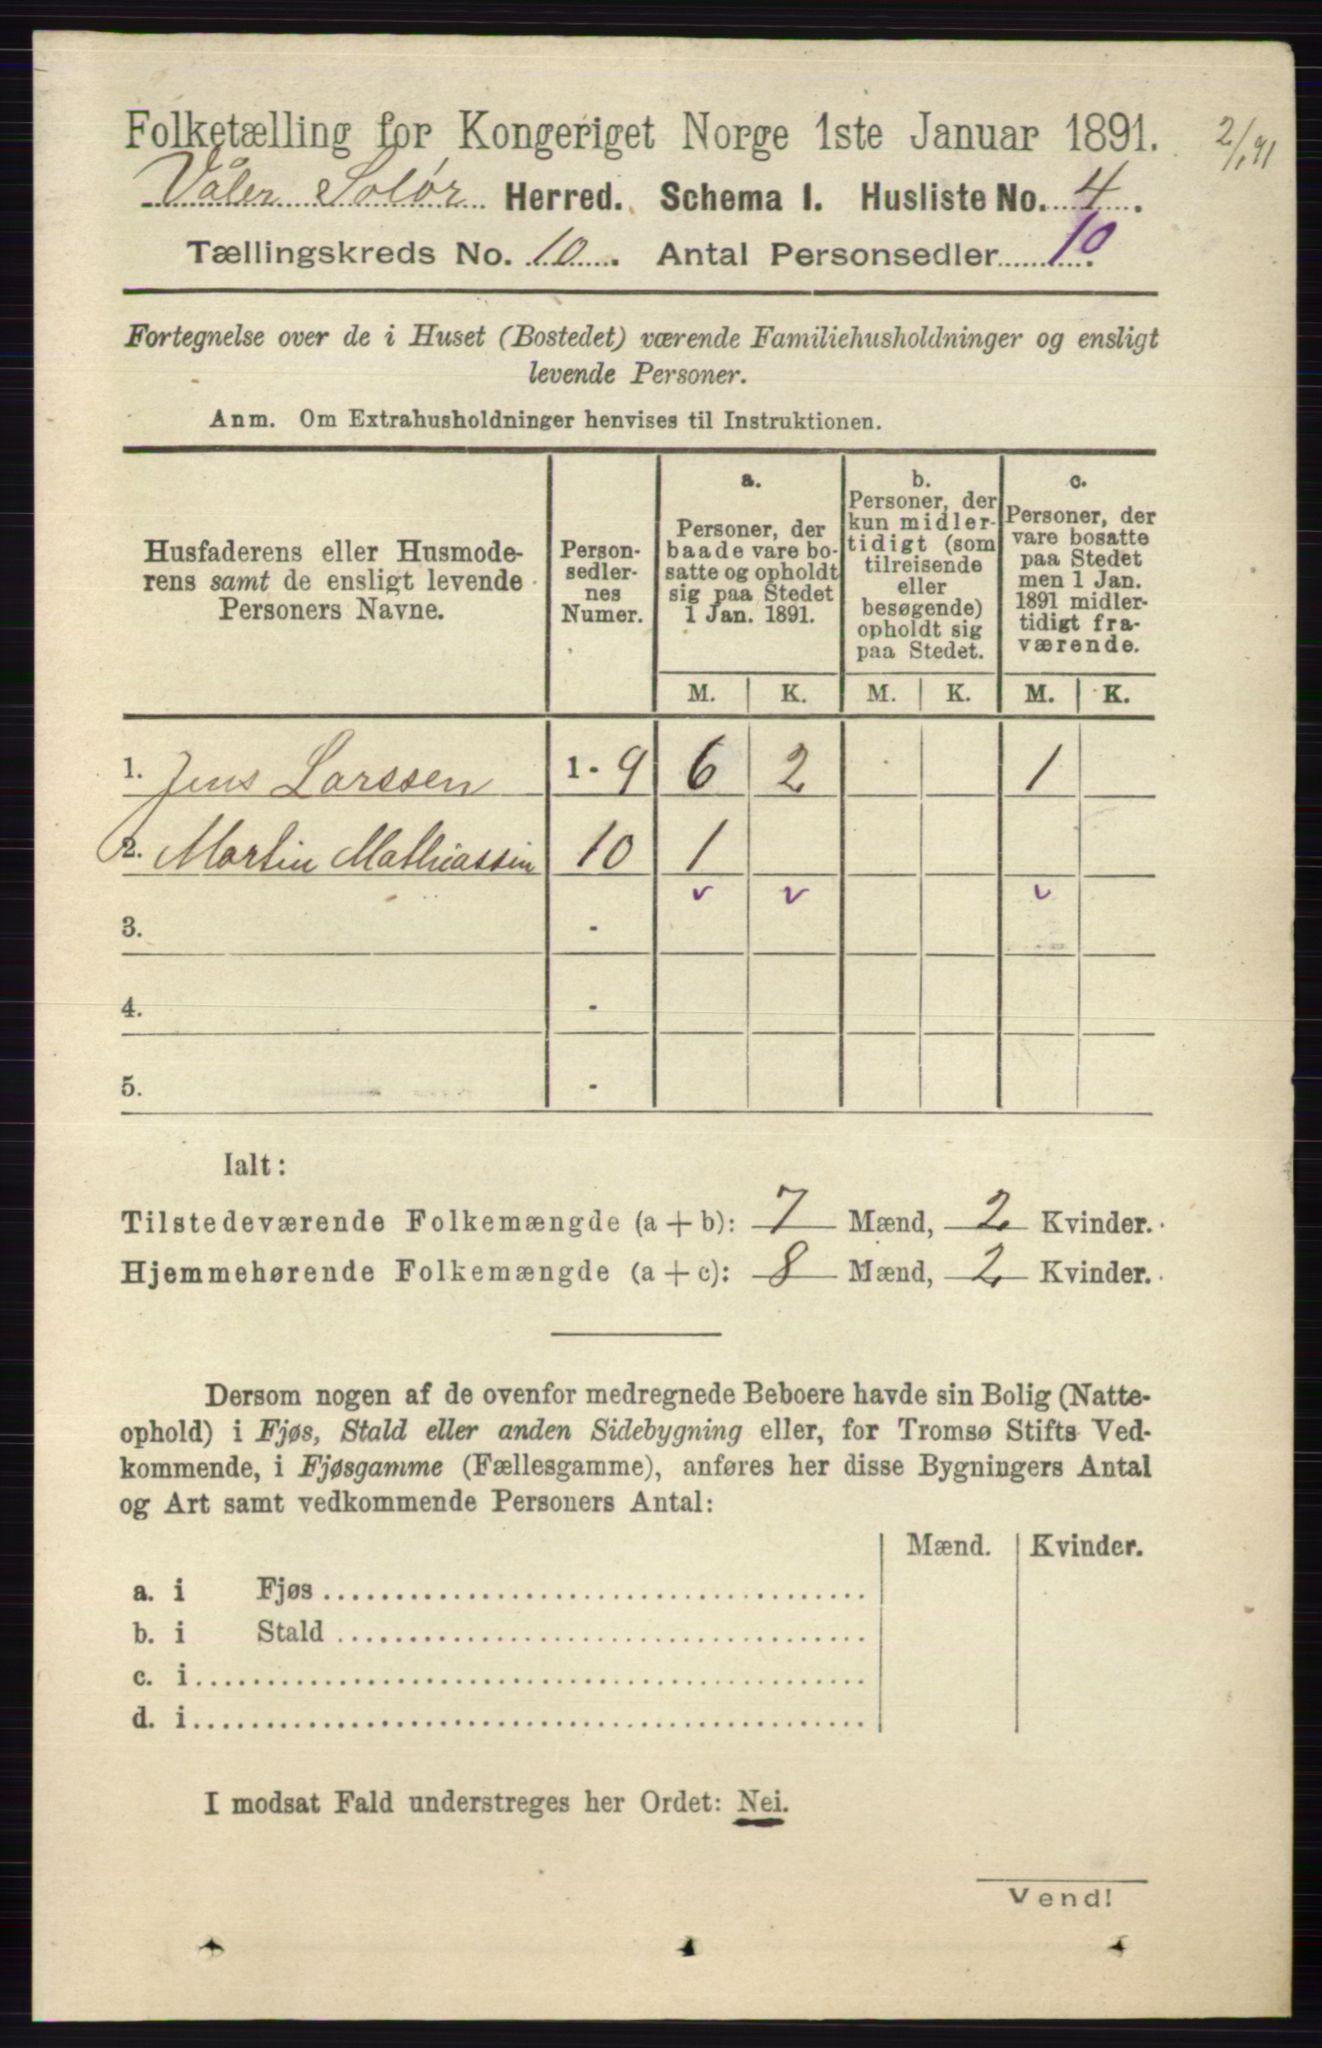 Folketælling for Kongeriget Norge 1ste Januar 1891.
2/1 91
Våler Solør Herred. Schema I. Husliste No. 4.
Tællingskreds No. 10. Antal Personsedler 10.
Fortegnelse over de i Huset (Bostedet) værende Familiehusholdninger og ensligt
levende Personer.
Anm. Om Extrahusholdninger henvises til Instruktionen.
Husfaderens eller Husmode-
rens samt de ensligt levende
Personers Navne.
Person-
sedler-
nes
Numer.
a.
Personer, der
baade vare bo-
satte og opholdt
sig paa Stedet
1 Jan. 1891.
b.
Personer, der
kun midler-
tidigt (som
tilreisende
eller
besøgende)
opholdt sig
paa Stedet.
c.
Personer, der
vare bosatte
paa Stedet
men 1 Jan.
1891 midler-
tidigt fra-
værende.
M. K. M. K. M. K.
1. Jens Larssen 1 - 9 6 2 1
2. Martin Mathiassen 10 1
3. -
4. -
5. -
Ialt:
Tilstedeværende Folkemængde (a + b): 7 Mænd, 2 Kvinder.
Hjemmehørende Folkemængde (a + c): 8 Mænd, 2 Kvinder.
Dersom nogen af de ovenfor medregnede Beboere havde sin Bolig (Natte-
ophold) i Fjøs, Stald eller anden Sidebygning eller, for Tromsø Stifts Ved-
kommende, i Fjøsgamme (Fællesgamme), anføres her disse Bygningers Antal
og Art samt vedkommende Personers Antal:
Mænd. Kvinder.
a. i Fjøs
b. i Stald
c. i
d. i
I modsat Fald understreges her Ordet: Nei.
Vend!